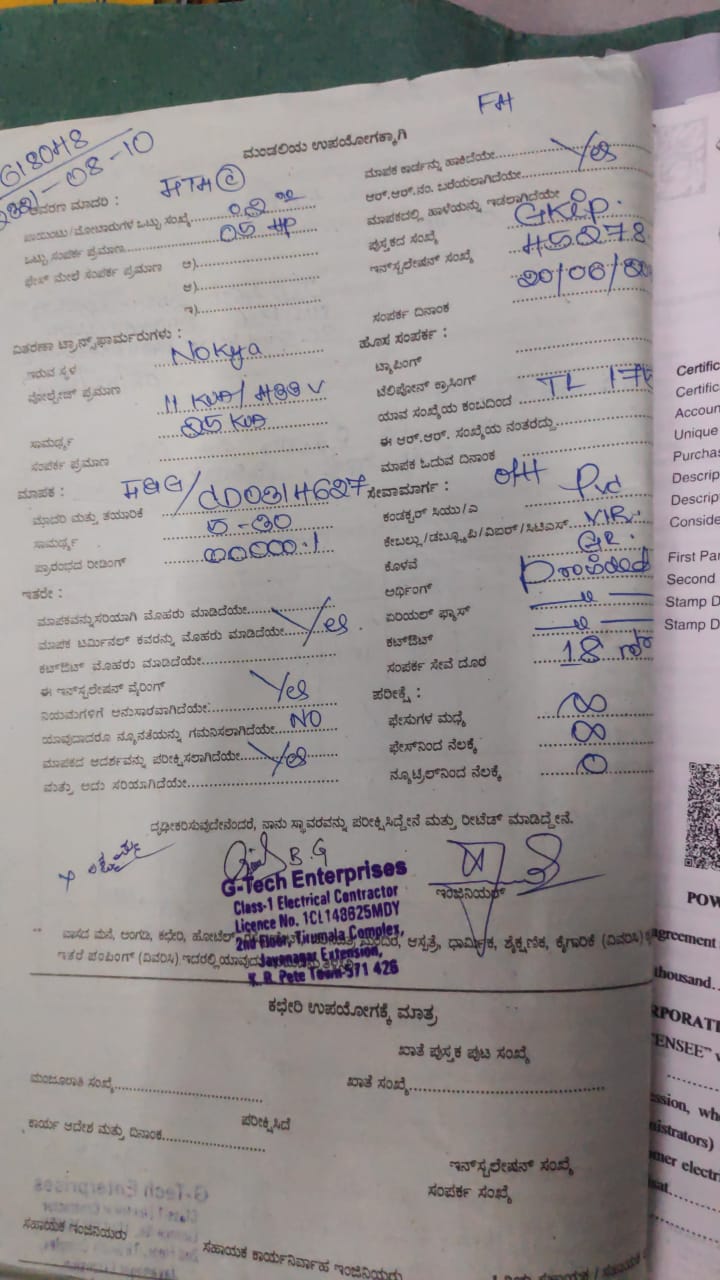 FH
618048
08-10
ಮಂಡಲಿಯ ಉಪಯೋಗಕ್ಕಾಗಿ
ಮಾದರಿ :
ಪಾಯಿಂಟು/ಮೋಟಾರುಗಳ ಒಟ್ಟು ಸಂಖ್ಯೆ
ಒಟ್ಟು ಸಂಪರ್ಕ ಪ್ರಮಾಣ 05 HP
ಫೇಸ್ ಮೇಲೆ ಸಂಪರ್ಕ ಪ್ರಮಾಣ ಅ)
ಆ)
ಇ)
ವಿತರಣಾ ಟ್ರಾನ್ಸ್‌ಫಾರ್ಮರುಗಳು :
ಇರುವ ಸ್ಥಳ Nokya
ವೋಲ್ಟೇಜ್ ಪ್ರಮಾಣ
ಸಾಮರ್ಥ್ಯ 25 KVA
ಸಂಪರ್ಕ ಪ್ರಮಾಣ
ಮಾಪಕ :
ಮಾದರಿ ಮತ್ತು ತಯಾರಿಕೆ
ಸಾಮರ್ಥ್ಯ 5-30
ಪ್ರಾರಂಭದ ರೀಡಿಂಗ್ 00000.1
ಇತರೇ :
ಮಾಪಕವನ್ನು ಸರಿಯಾಗಿ ಮೊಹರು ಮಾಡಿದೆಯೇ
ಮಾಪಕ ಟರ್ಮಿನಲ್ ಕವರನ್ನು ಮೊಹರು ಮಾಡಿದೆಯೇ Yes
ಕಟ್‌ಔಟ್ ಮೊಹರು ಮಾಡಿದೆಯೇ
ಈ ಇನ್‌ಸ್ಟಲೇಷನ್ ವೈರಿಂಗ್
ನಿಯಮಗಳಿಗೆ ಅನುಸಾರವಾಗಿದೆಯೇ: Yes
ಯಾವುದಾದರೂ ನ್ಯೂನತೆಯನ್ನು ಗಮನಿಸಲಾಗಿದೆಯೇ NO
ಮಾಪಕದ ಆದರ್ಶವನ್ನು ಪರೀಕ್ಷಿಸಲಾಗಿದೆಯೇ Yes
ಮತ್ತು ಅದು ಸರಿಯಾಗಿದೆಯೇ
ಮಾಪಕ ಕಾರ್ಡನ್ನು ಹಾಕಿದೆಯೇ Yes
ಆರ್.ಆರ್.ನಂ. ಬರೆಯಲಾಗಿದೆಯೇ
ಮಾಪಕದಲ್ಲಿ ಹಾಳೆಯನ್ನು ಇಡಲಾಗಿದೆಯೇ
ಪುಸ್ತಕದ ಸಂಖ್ಯೆ GKip.
ಇನ್‌ಸ್ಟಲೇಷನ್ ಸಂಖ್ಯೆ 45278
ಸಂಪರ್ಕ ದಿನಾಂಕ
ಹೊಸ ಸಂಪರ್ಕ :
ಟ್ಯಾಪಿಂಗ್
ಟೆಲಿಪೋನ್ ಕ್ರಾಸಿಂಗ್
ಯಾವ ಸಂಖ್ಯೆಯ ಕಂಬದಿಂದ
ಈ ಆರ್.ಆರ್. ಸಂಖ್ಯೆಯ ನಂತರದ್ದು
ಮಾಪಕ ಓದುವ ದಿನಾಂಕ
ಸೇವಾಮಾರ್ಗ : OH
ಕಂಡಕ್ಟರ್ ಸಿಯು/ಎ Pvd
ಕೇಬಲ್ಲು/ಡಬ್ಲ್ಯೂಪಿ/ವಿಐಆರ್/ಸಿಟಿಎಸ್ VIR.
ಕೊಳವೆ GR.
ಅರ್ಥಿಂಗ್ Provided
ಏರಿಯಲ್ ಫ್ಯೂಸ್
ಕಟ್‌ಔಟ್
ಸಂಪರ್ಕ ಸೇವೆ ದೂರ 18
ಪರೀಕ್ಷೆ :
ಫೇಸುಗಳ ಮಧ್ಯೆ ∞
ಫೇಸ್‌ನಿಂದ ನೆಲಕ್ಕೆ ∞
ನ್ಯೂಟ್ರಲ್‌ನಿಂದ ನೆಲಕ್ಕೆ 0
ದೃಢೀಕರಿಸುವುದೇನೆಂದರೆ, ನಾನು ಸ್ಥಾವರವನ್ನು ಪರೀಕ್ಷಿಸಿದ್ದೇನೆ ಮತ್ತು ರೀಟೆಡ್ ಮಾಡಿದ್ದೇನೆ.
B.G
ಇಂಜಿನಿಯರ್
G-Tech Enterprises
Class-1 Electrical Contractor
Licence No. 1CL148625MDY
2nd Floor, Tirumala Complex,
Jayanagar Extension,
K. R. Pete Town-571 426
** ವಾಸದ ಮನೆ, ಅಂಗಡಿ, ಕಛೇರಿ, ಹೋಟೆಲ್ ಆಸ್ಪತ್ರೆ, ಧಾರ್ಮಿಕ, ಶೈಕ್ಷಣಿಕ, ಕೈಗಾರಿಕೆ (ವಿವರಿಸಿ)
ಇತರೆ ಪಂಪಿಂಗ್ (ವಿವರಿಸಿ) ಇದರಲ್ಲಿ
ಕಛೇರಿ ಉಪಯೋಗಕ್ಕೆ ಮಾತ್ರ
ಖಾತೆ ಪುಸ್ತಕ ಪುಟ ಸಂಖ್ಯೆ
ಮಂಜೂಲಾತಿ ಸಂಖ್ಯೆ
ಖಾತೆ ಸಂಖ್ಯೆ
ಪರೀಕ್ಷಿಸಿದೆ
ಕಾರ್ಯ ಆದೇಶ ಮತ್ತು ದಿನಾಂಕ
ಇನ್‌ಸ್ಟಲೇಷನ್ ಸಂಖ್ಯೆ
ಸಂಪರ್ಕ ಸಂಖ್ಯೆ
ಸಹಾಯಕ ಇಂಜಿನಿಯರು
ಸಹಾಯಕ ಕಾರ್ಯನಿರ್ವಾಹ ಇಂಜಿನಿಯರು
Certific
Certific
Accoun
Unique
Purchas
Descrip
Descrip
Conside
First Par
Second
Stamp D
Stamp D
POW
agreement
thousand
RPORATI
ENSEE"
ssion, wh
nistrators)
mer electri